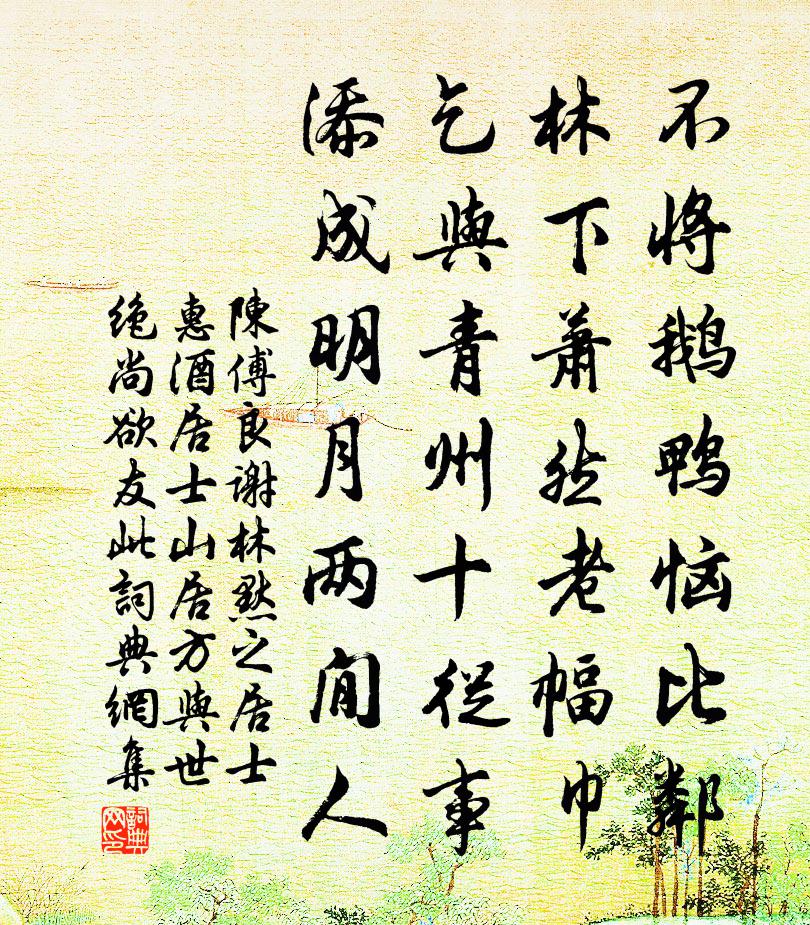 不將鹅鸭恼比鄰
林下萧然老幅巾
乞與青州十從事
添成明月两閒人
陳傅良謝林黙之居士
惠酒居士山居方與世
绝尚欲友此詞典網集
詞典网印